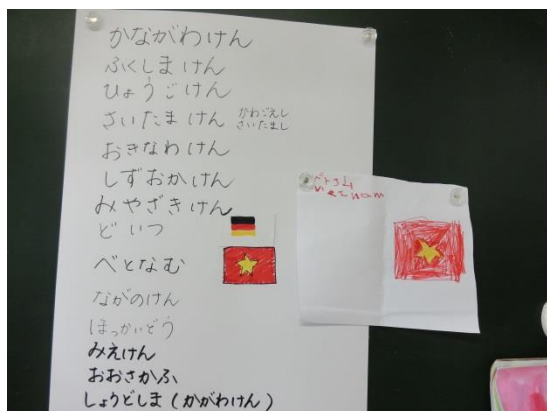 かながわけん
ふくしまけん
ひょうごけん
さいたまけん
かわごえし
さいたまし
おきなわけん
しずおかけん
みやざきけん
どいつ
べとなむ
ながのけん
ほっかいどう
みえけん
おおさかふ
しょうどしま(かがわけん)